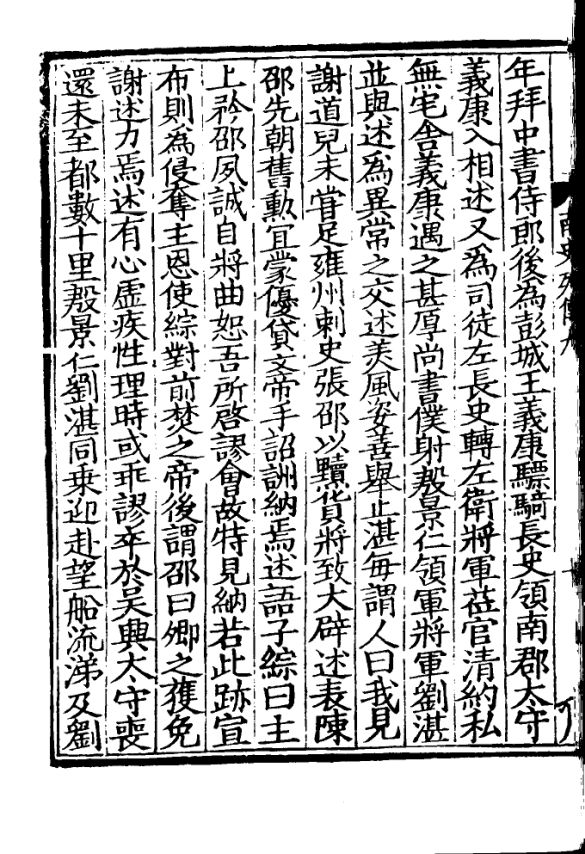 年拜中書侍郎後為彭城王義康驃騎長史領南郡太守
義康入相述又為司徒左長史轉左衛將軍莅官清約私
無宅舍義康遇之甚厚尚書僕射殷景仁領軍將軍劉湛
並與述為異常之交述美風姿善舉止湛每謂人曰我見
謝道兒未甞足雍州刺史張邵以黷貨將致大辟述表陳
邵先朝舊勲宜蒙優貸文帝手詔詶納焉述語子綜曰主
上矜邵夙誠自將曲恕吾所啓謬會故特見納若此跡宣
布則為侵奪主恩使綜對前焚之帝後謂邵曰卿之獲免
謝述力焉述有心虛疾性理時或乖謬卒於吳興太守喪
還未至都數十里殷景仁劉湛同乗迎赴望船流涕及劉